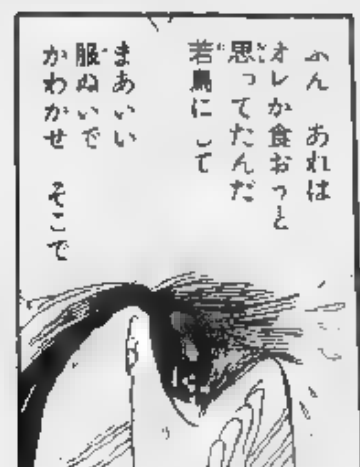 ふん あれは
オレが食おうと
思ってたんだ
若鳥にして
まあいい
服ぬいで
かわかせ そこで